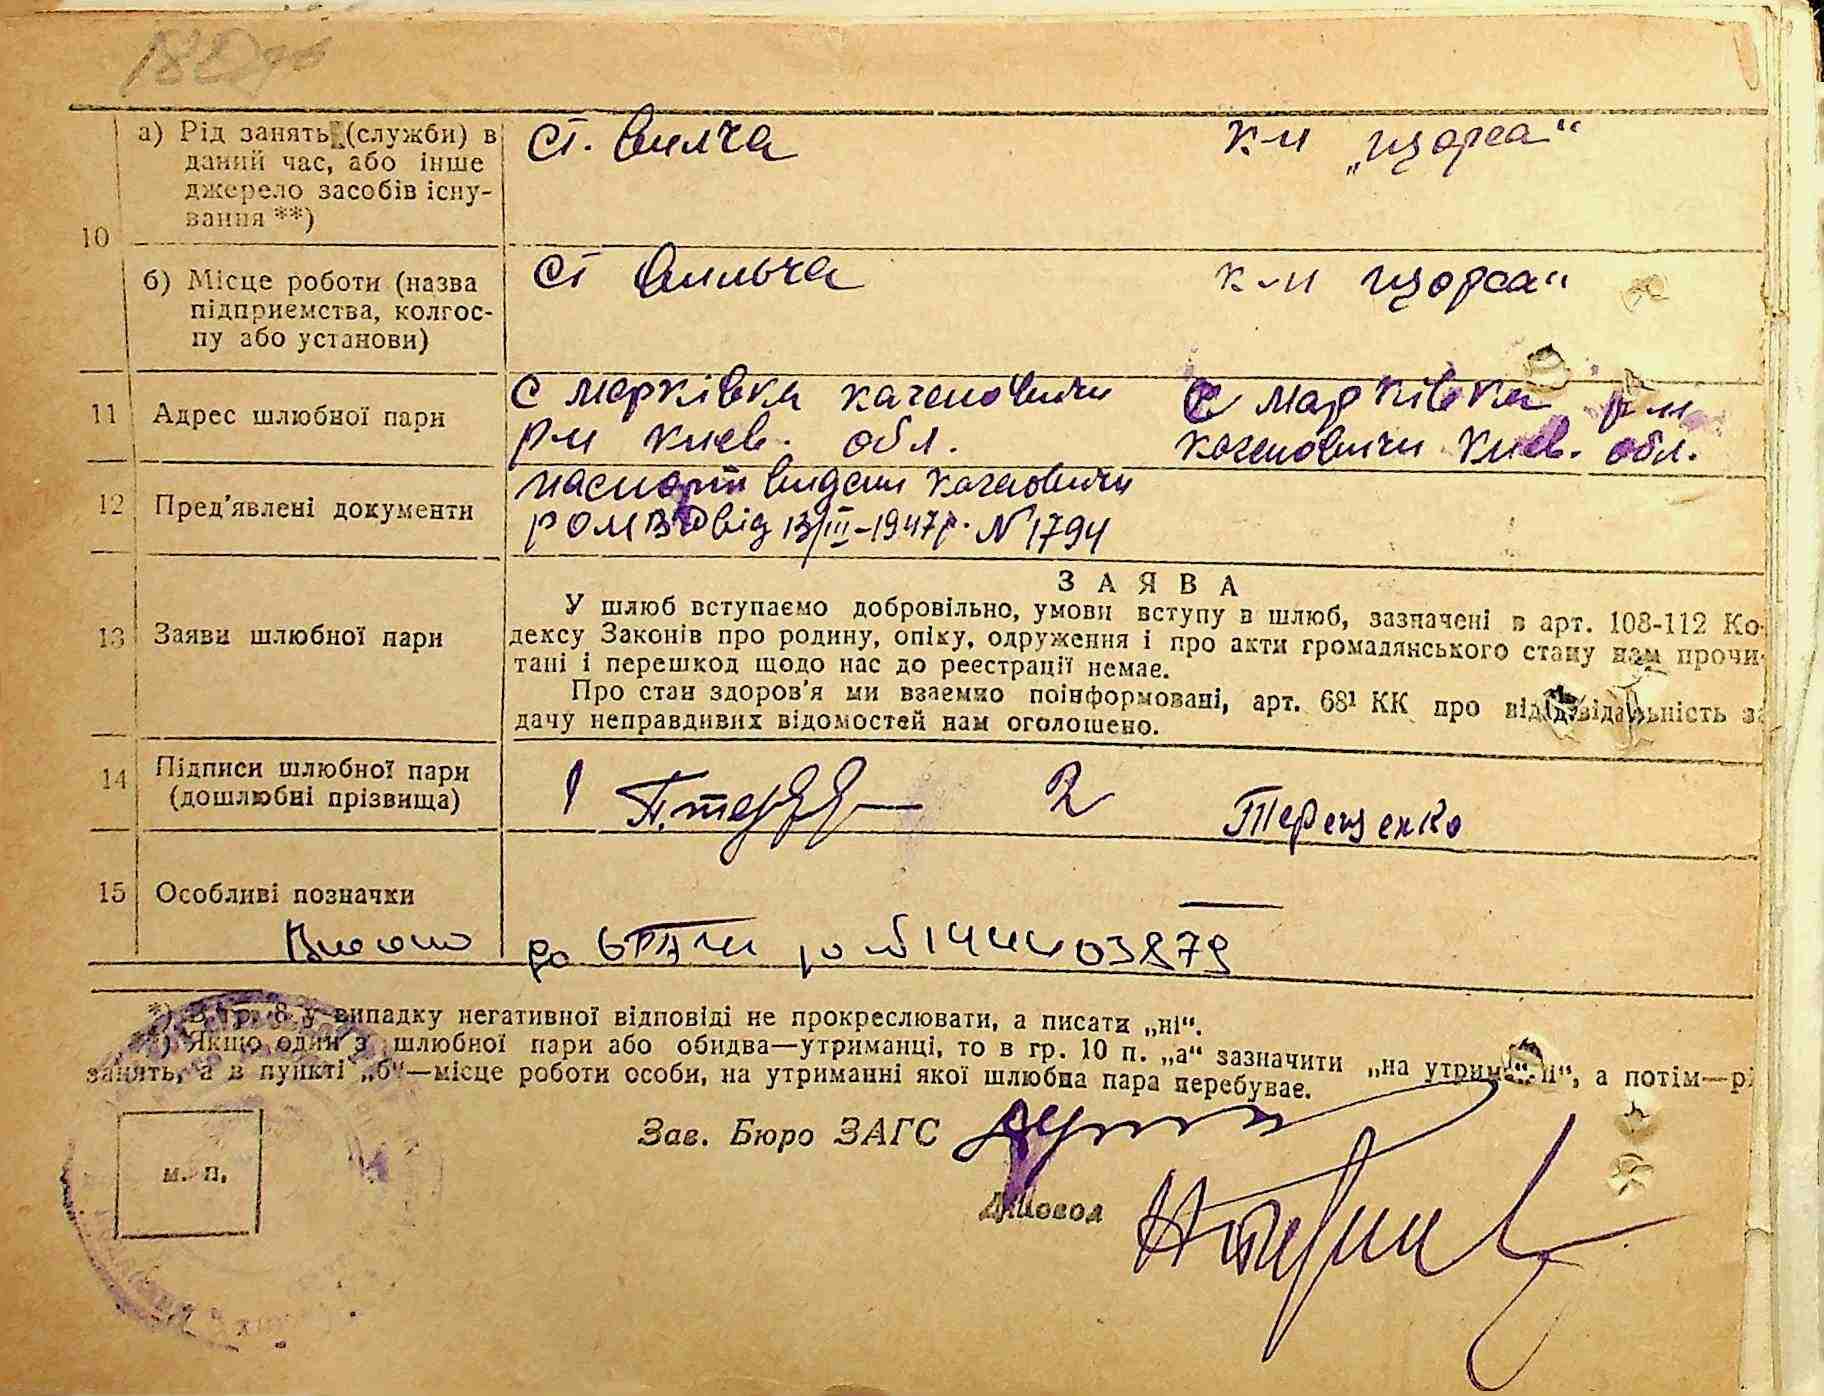 а) Рід занять (служби) в
даний час, або інше
джерело засобів існу-
вання **)
ст. Вилча
к-п „Щорса“
10
б) Місце роботи (назва
підприємства, колгос-
пу або установи)
ст Вильча
к-п Щорса“
11
Адрес шлюбної пари
с Марківка Кагановичи
р-н Києв. обл.
с Марківка р-н
Кагановичи Києв. обл.
12
Пред'явлені документи
паспорт видани Кагановичи
РО МВД від 13/III-1947р. N 1794
13
Заяви шлюбної пари
ЗАЯВА
У шлюб вступаємо добровільно, умови вступу в шлюб, зазначені в арт. 108-112 Ко-
дексу Законів про родину, опіку, одруження і про акти громадянського стану нам прочи-
тані і перешкод щодо нас до реєстрації немає.
Про стан здоров'я ми взаємно поінформовані, арт. 68¹ КК про відповідальність за
дачу неправдивих відомостей нам оголошено.
14
Підписи шлюбної пари
(дошлюбні прізвища)
1
2
Терещенко
15
Особливі позначки
Внесено до
*) В гр. 8 у випадку негативної відповіді не прокреслювати, а писати „ні“.
**) Якщо один з шлюбної пари або обидва—утриманці, то в гр. 10 п. „а“ зазначити „на утриманні“, а потім—рід
занять, а в пункті „б“—місце роботи особи, на утриманні якої шлюбна пара перебуває.
Зав. Бюро ЗАГС
м. п.
Діловод